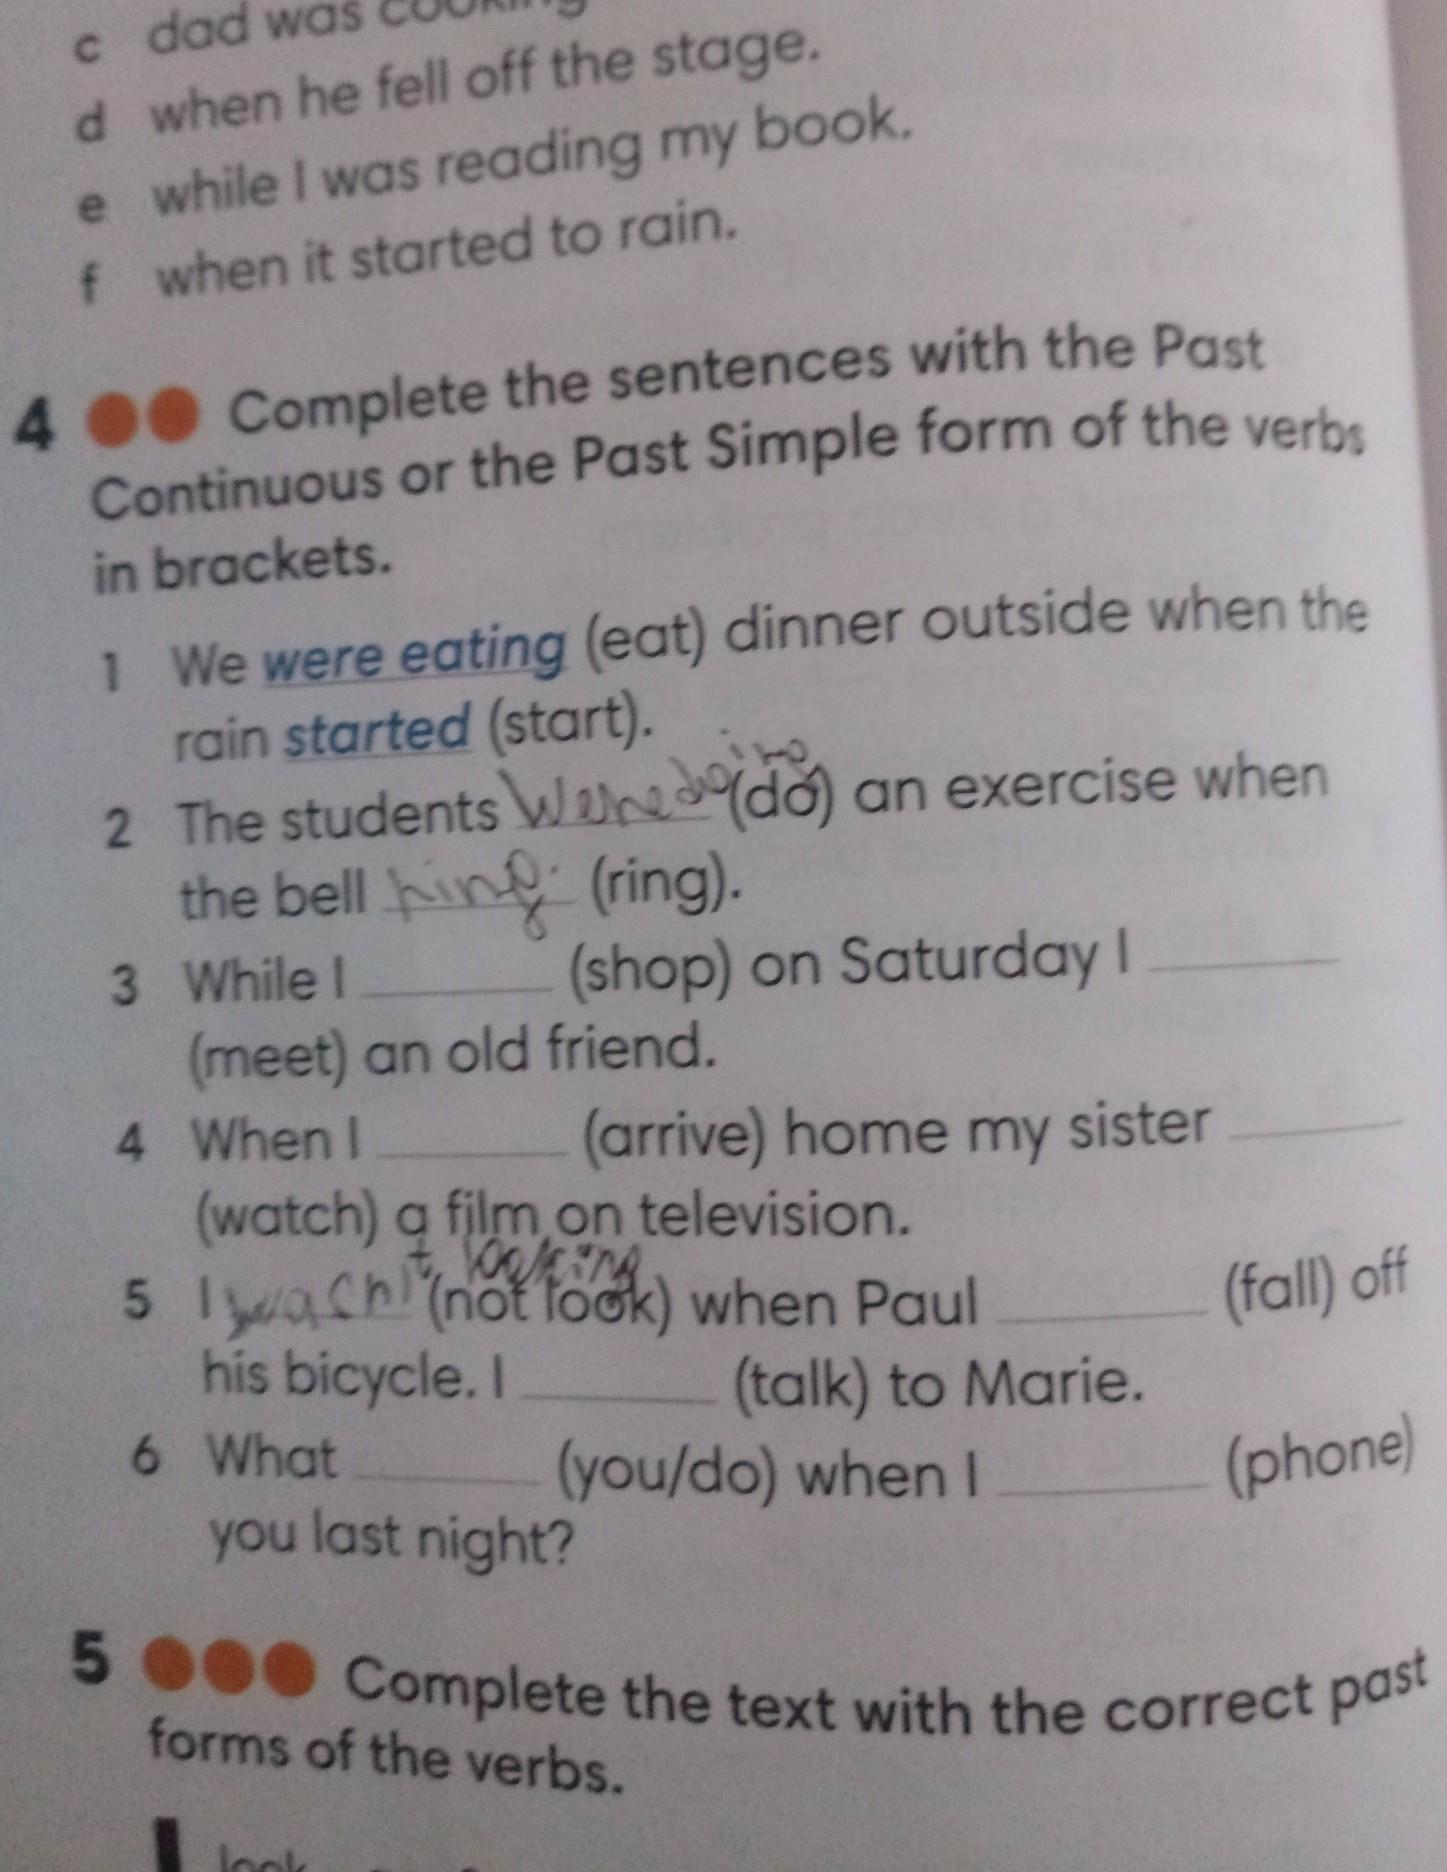 c dad was cooking
d when he fell off the stage.
e while I was reading my book.
f when it started to rain.
4 Complete the sentences with the Past
Continuous or the Past Simple form of the verbs
in brackets.
1 We were eating (eat) dinner outside when the
rain started (start).
2 The students were doing (do) an exercise when
the bell (ring).
3 While I (shop) on Saturday I
(meet) an old friend.
4 When I (arrive) home my sister
(watch) a film on television.
looking
5 I (not look) when Paul (fall) off
his bicycle. I (talk) to Marie.
6 What (you/do) when I (phone)
you last night?
5 Complete the text with the correct past
forms of the verbs.
look